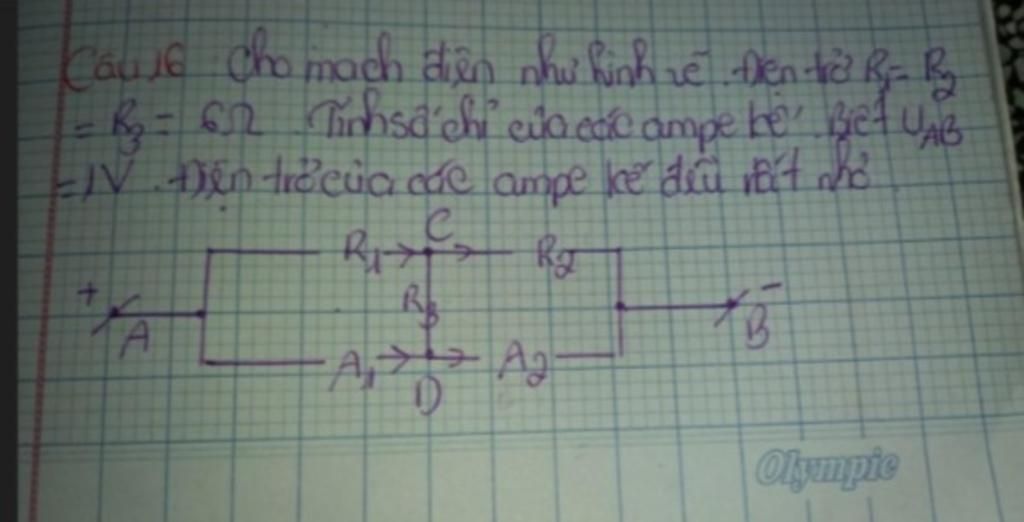 Câu 16 Cho mạch điện như hình vẽ. Điện trở R1 = R2
= R3 = 6Ω Tính số chỉ của các ampe kế. Biết UAB
= 1V. Điện trở của các ampe kế đều rất nhỏ
C
R1 R2
+ R3 -
A B
A1 A2
D
Olympic